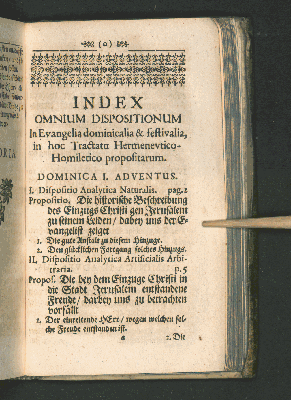 (o)
INDEX
OMNIUM DISPOSITIONUM
In Evangelia dominicalia & festivalia,
in hoc Tractatu Hermenevtico-
Homiletico propositarum.
DOMINICA I. ADVENTUS.
I. Dispositio Analytica Naturalis. pag.2
Propositio. Die historische Beschreibung
des Einzugs Christi gen Jerusalem
zu seinem Leiden / dabey uns der E-
vangelist zeiget
1. Die gute Anstalt zu diesem Einzuge.
2. Den glücklichen Fortgang solches Einzugs.
II. Dispositio Analytica Artificialis Arbi-
traria. p.5
Propos. Die bey dem Einzuge Christi in
die Stadt Jerusalem entstandene
Freude / darbey uns zu betrachten
vorfällt
1. Der einreitende HErr / wegen welchen sol-
che Freude entstanden ist.
a 2. Die